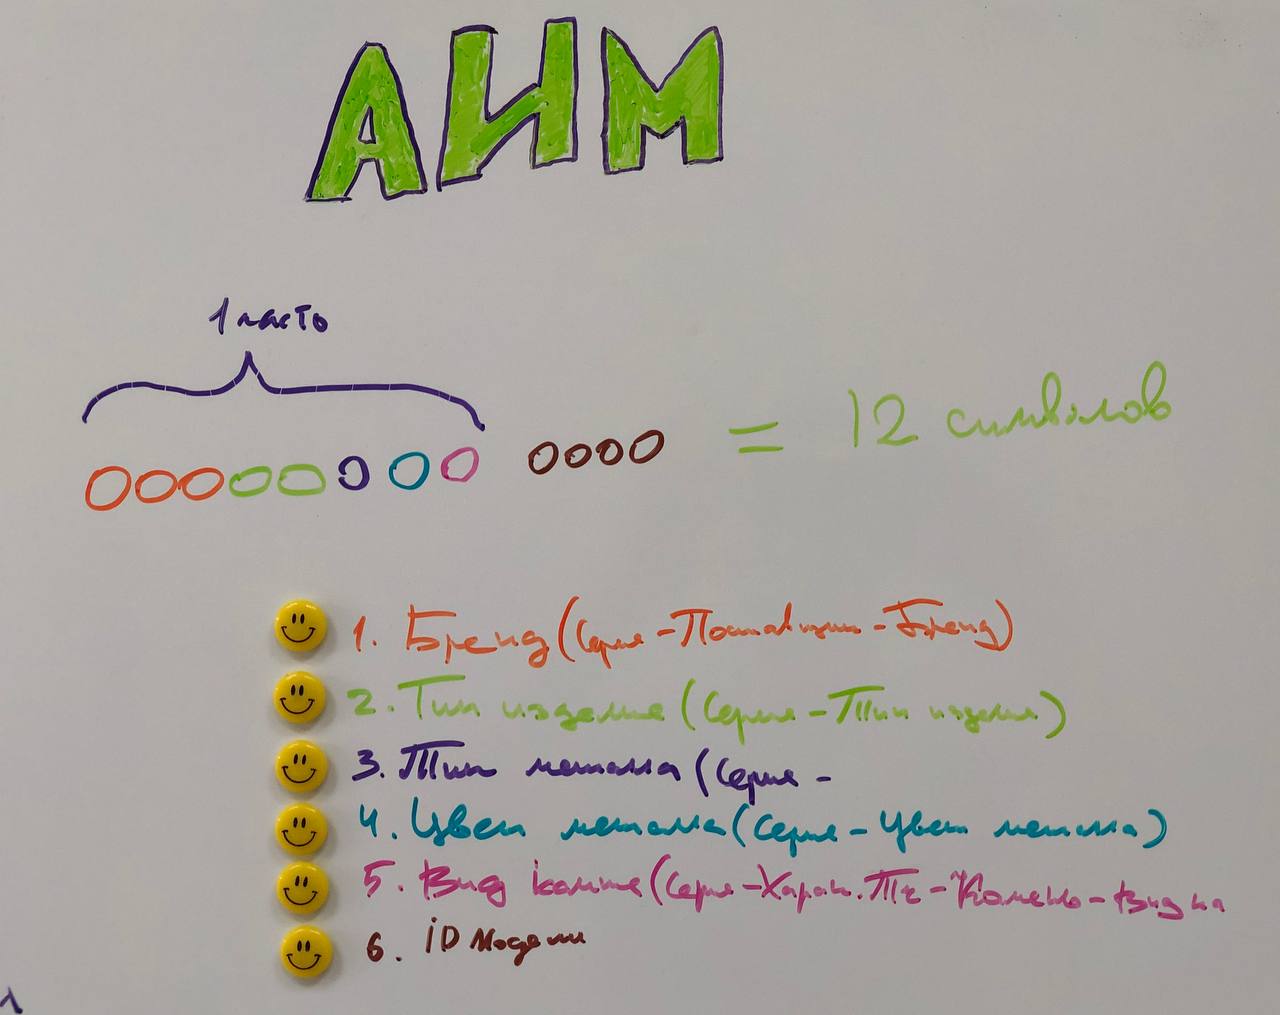 АИМ
1 часть
OOOOOOOO OOOO = 12 символов
1. Бренд (Серия - Поставщик - Бренд)
2. Тип изделия (Серия - Тип изделия)
3. Тип металла (Серия -
4. Цвет металла (Серия - Цвет металла)
5. Вид камня (Серия - Характ. - Камень - Вид ка
6. ID модели